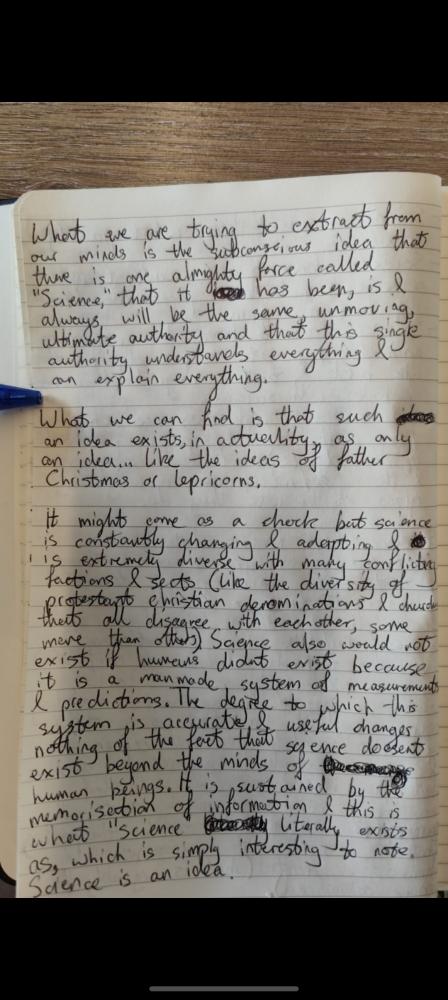 What we are trying to extract from
our minds is the subconscious idea that
there is one almighty force called
"Science," that it has been, is &
always will be the same, unmoving,
ultimate authority and that this single
authority understands everything &
can explain everything.
What we can find is that such
an idea exists, in actuality, as only
an idea... Like the ideas of father
Christmas or lepricorns.
It might come as a chock but science
is constantly changing & adapting &
is extremely diverse with many conflicting
factions & sects (like the diversity of
protestant christian denominations & churches
that all disagree with eachother, some
more than others) Science also would not
exist if humans didnt exist because
it is a manmade system of measurement
& predictions. The degree to which this
system is accurate & useful changes
nothing of the fact that science doesent
exist beyond the minds of
human beings. It is sustained by the
memorisation of information & this is
what "Science literally exists
as, which is simply interesting to note.
Science is an idea.